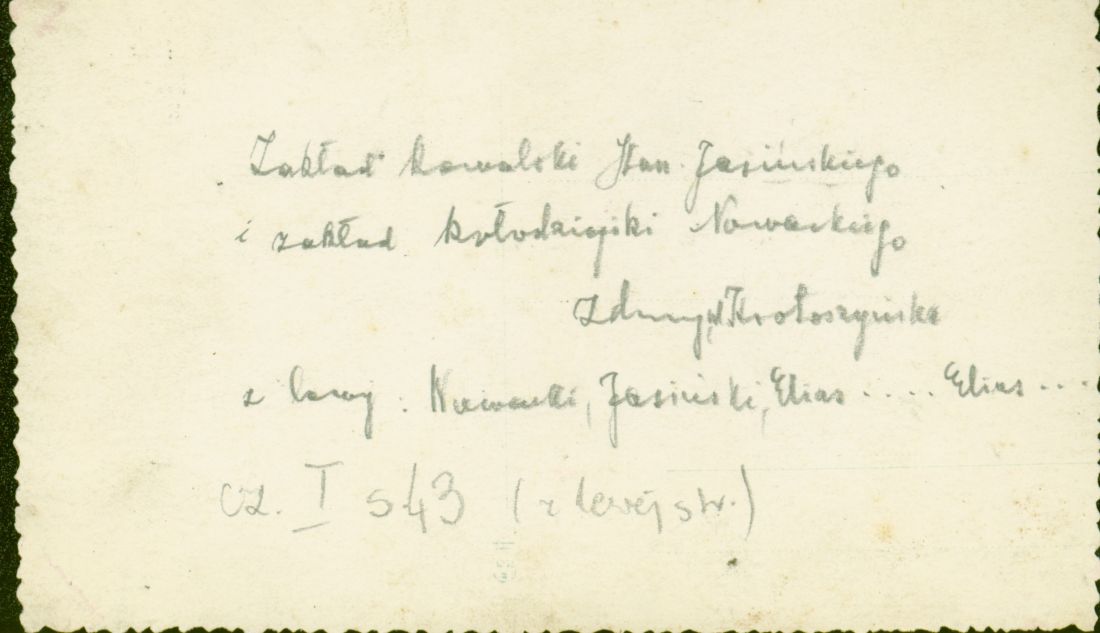 Zakład kowalski Stan. Jasińskiego
i zakład kołodziejski Nowackiego
Zduny, Krotoszyńska
z lewej : Nowacki, Jasiński, Elias ..... Elias ...
cz. I s 43 (z lewej str.)